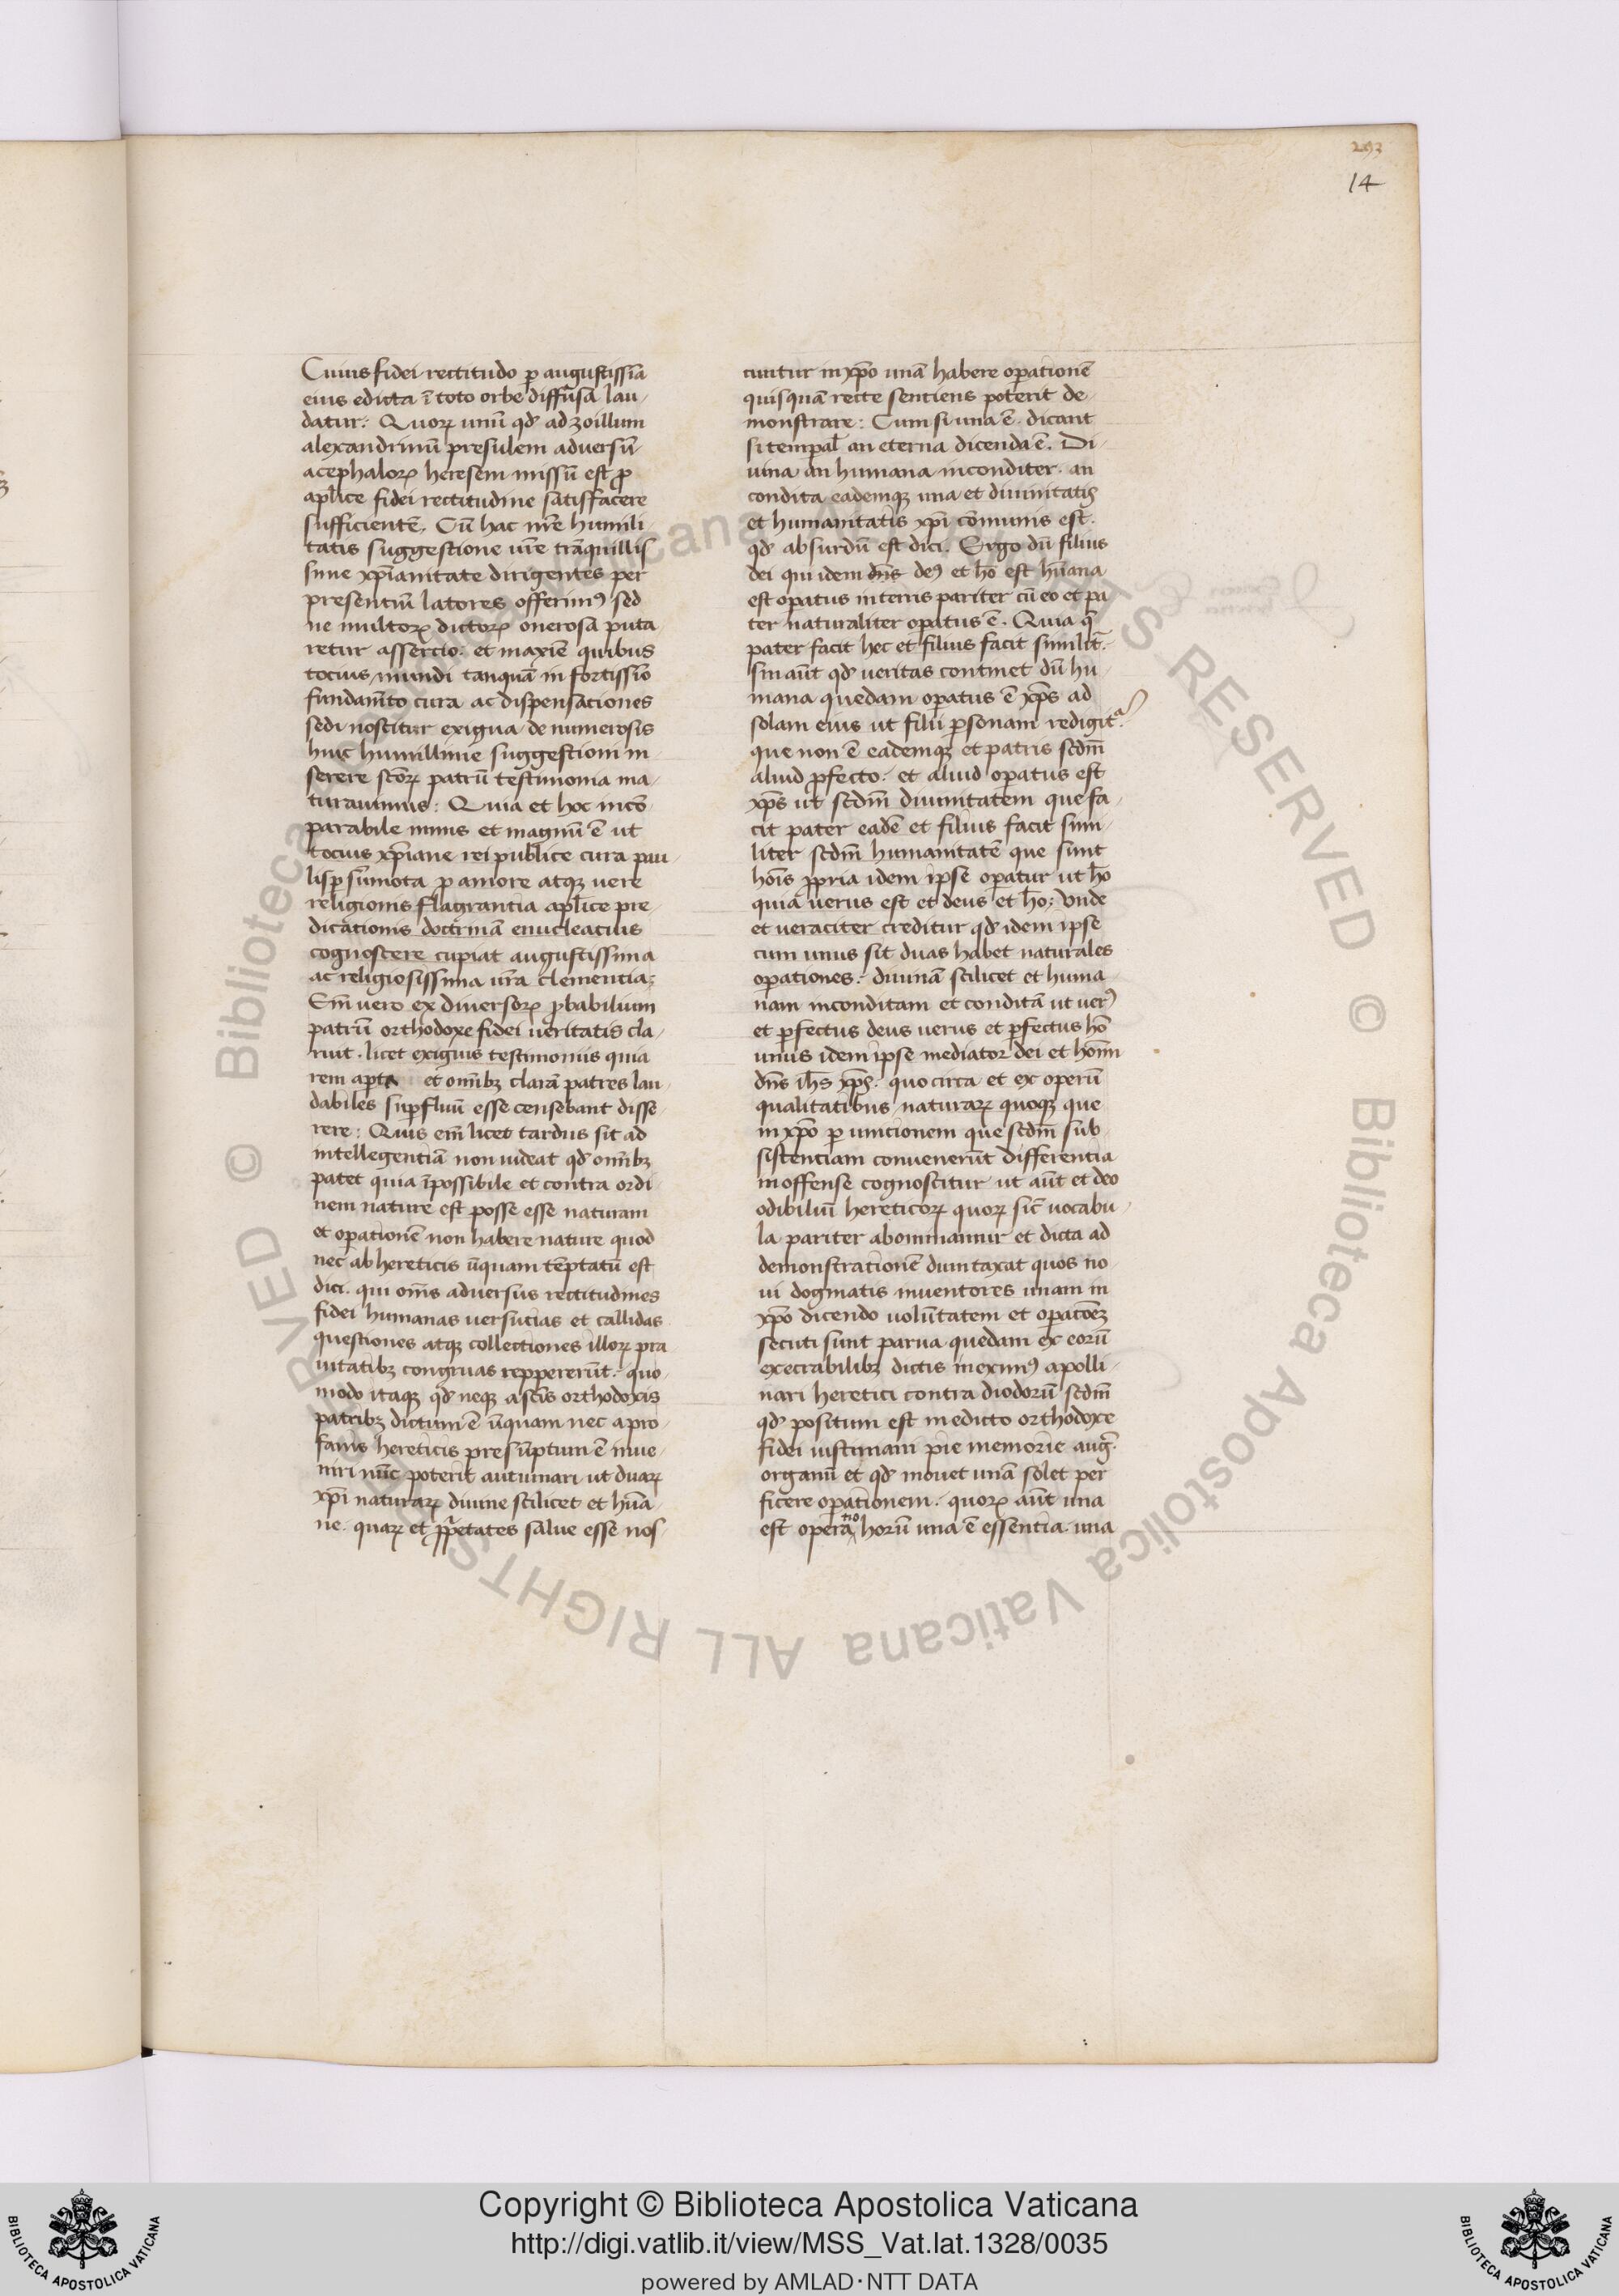 293
14
Cuius fidei rectitudo ꝑ augustissīa
eius edicta ī toto orbe diffusa lau-
datur: Quoꝝ unū qđ ad zoillum
alexandrinū presulem adversū
acephaloꝝ heresem missū est ꝓ
apl̄ice fidei rectitudine satisfacere
sufficientē. Cū hac nr̄e humili-
tatis suggestione ur̄e trāquillis
sime xp̄ianitate dirigentes per
presentiū latores offerimꝰ sed
ne multoꝝ dictoꝝ onerosa puta
retur assercio. et maxīe quibus
tocius mundi tanquā in fortissīo
fundam̄to cura ac dispensationes
sedi noscitur exigua de numerosis
huic humillime suggestioni in-
serere sc̄oꝝ patrū testimonia ma-
turauimus: Quia et hoc incō
parabile nimis et magnū ē ut
tocius xp̄iane rei publice cura pau-
lisꝑ sūmota ꝓ amore atqꝫ vere
religionis flagrantia apl̄ice pre-
dicationis doctrinā enucleacius
cognoscere cupiat augustissima
ac religiosissima ur̄a clementia;
Em̄ vero ex diversoꝝ ꝓbabilium
patrū orthodoxe fidei veritatis cla-
ruit. licet exiguis testimoniis quia
rem apta et om̄ibꝫ clarā patres lau-
dabiles suꝑfluū esse censebant disse-
rere: Quis em̄ licet tardus sit ad
intellegentiā non videat qđ om̄ibꝫ
patet quia īpossibile et contra ordi-
nem nature est posse esse naturam
et oꝑationē non habere nature quod
nec ab hereticis ūquam tēptatū est
dici. qui om̄s adversus rectitudines
fidei humanas versucias et callidas
questiones atqꝫ collectiones illoꝝ pra
vitatibꝫ congruas reppererūt. quo-
modo itaqꝫ qđ neqꝫ a sc̄is orthodoxis
patribꝫ dictum ē ūquam nec a pro-
fanis hereticis presūptum ē inve-
niri nūc poterit autumari ut duaꝝ
xp̄i naturaꝝ divine scilicet et hūa-
ne. quaꝝ et ꝓpͥetates salve esse nos-
cuntur in xp̄o unā habere oꝑationē
quisquā recte sentiens poterit de-
monstrare: Cum si una ē. dicant
si tempal̄ an eterna dicenda ē. Di-
uina an humana inconditer. an
condita eademqꝫ una et divinitatis
et humanitatis xp̄i cōmunis est.
qđ absurdū est dici. Ergo dū filius
dei qui idem dn̄s deꝰ et hō est hūana
est oꝑatus in terris pariter cū eo et pa
ter naturaliter oꝑatus ē. Quia q̄
pater facit hec et filius facit similit̄.
sin aūt qđ veritas continet dū hu-
mana quedam oꝑatus ē xp̄s ad
solam eius ut filii ꝑsonam redigitᵃ
que non ē eademqꝫ et patris sc̄dm̄
aliud ꝓfecto. et aliud oꝑatus est
xp̄s ut sc̄dm̄ divinitatem que fa-
cit pater eadē et filius facit simi-
liter sc̄dm̄ humanitatē que sunt
hōis ꝓpria idem ipse oꝑatur ut hō
quia verus est et deus et hō; Unde
et veraciter creditur qđ idem ipse
cum unus sit duas habet naturales
oꝑationes. divinā scilicet et huma
nam inconditam et conditā ut verꝰ
et ꝑfectus deus verus et ꝑfectus hō
unus idem ipse mediator dei et hoīm
dn̄s ih̄s xp̄s. quo circa et ex operū
qualitatibus naturaꝝ quoqꝫ que
in xp̄o ꝑ unicionem que sc̄dm̄ sub-
sistenciam convenerūt differentia
inoffense cognoscitur ut aūt et deo
odibiliū hereticoꝝ quoꝝ sic̄ vocabu-
la pariter abominamur et dicta ad
demonstrationē dumtaxat quos no-
vi dogmatis inventores unam in
xp̄o dicendo volūtatem et oꝑacōēꝫ
secuti sunt parva quedam ex eorū
execrabilibꝫ dictis ineximꝰ apolli-
nari heretici contra diodorū sc̄dm̄
qđ positum est in edicto orthodoxe
fidei iustiniani pie memorie auḡ.
organū et qđ movet unā solet per
ficere oꝑationem. quoꝝ aūt una
est operaⁿᵒ horū una ē essentia. una
Copyright © Biblioteca Apostolica Vaticana
http://digi.vatlib.it/view/MSS_Vat.lat.1328/0035
powered by AMLAD·NTT DATA